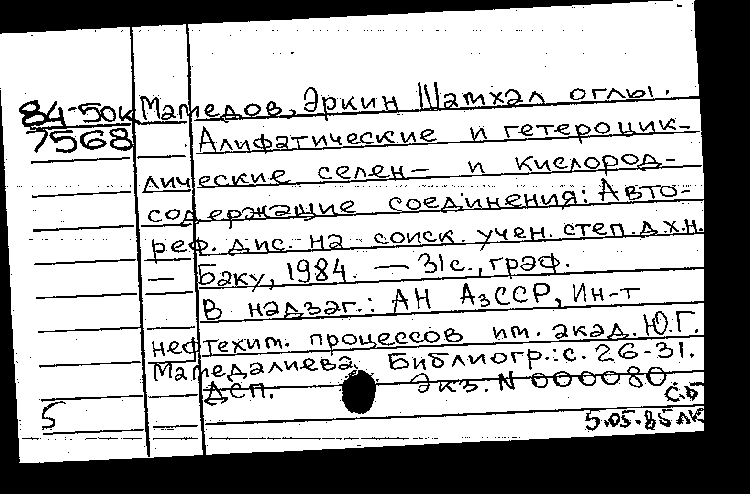 84-50к Мамедов, Эркин Шамхал оглы.
7568 Алифатические и гетероцик-
лические селен- и кислород-
содержащие соединения: Авто-
реф. дис. на соиск. учен. степ. д.х.н.
— Баку, 1984. — 31с., граф.
В надзаг.: АН АзССР, Ин-т
нефтехим. процессов им. акад. Ю.Г.
Мамедалиева. Библиогр.: с. 26-31.
ДСП. Экз. N 000080.
С.Б
5 5.05.85 ЛК